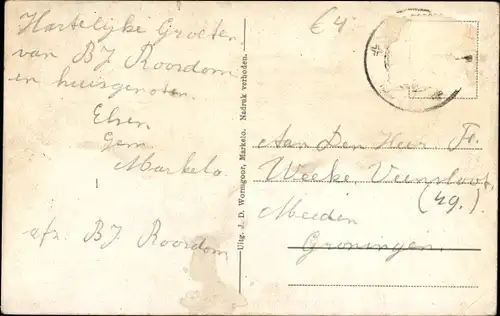 Hartelijke Groeten
van BJ Roordom
en huisgenoten
Elsen
Gem.
Markelo
afz. BJ. Roordom
€4
Uitg. J. D. Wormgoor, Markelo. Nadruk verboden.
Aan Den Heer Fr.
Weeke Veensloot
(49.)
Meeden
Groningen.